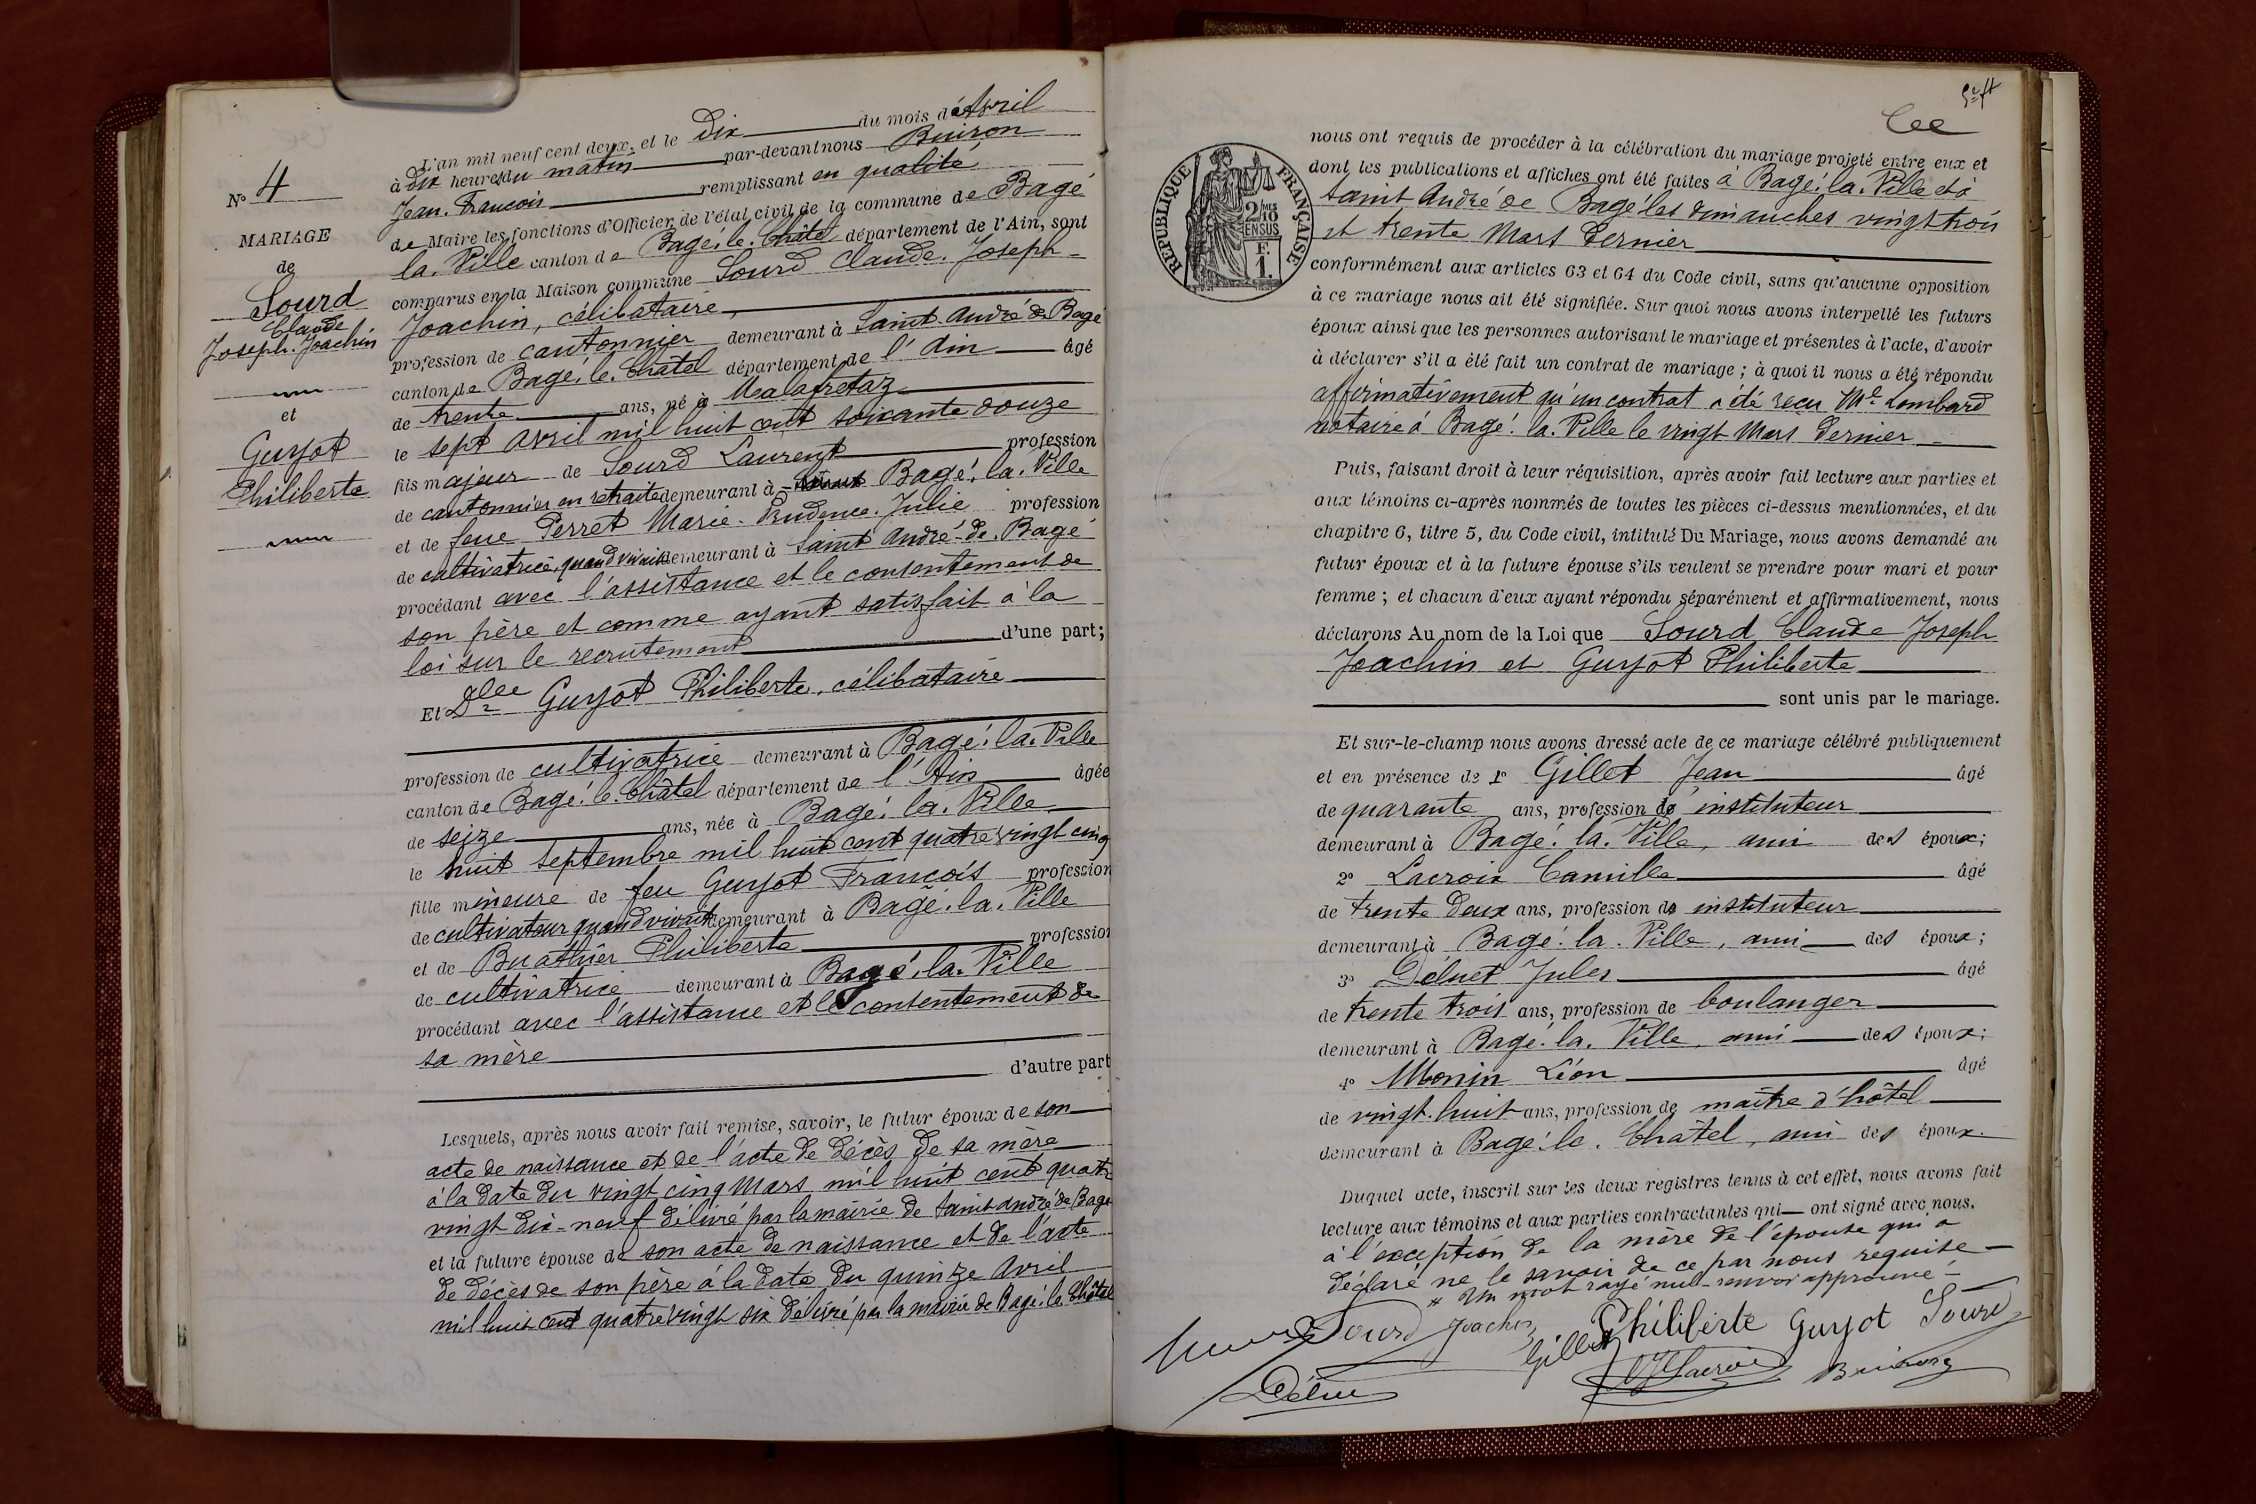 L'an mil neuf cent deux, et le Dix du mois d'Avril
à dix heures du matin par-devant nous Buiron
Jean. François remplissant en qualité
de Maire les fonctions d'Officier de l'état civil de la commune de Bagé
la. Ville canton de Bagé. le. Châtel département de l'Ain, sont
comparus en la Maison commune Sourd Claude. Joseph-
Joachin, célibataire,
profession de cantonnier demeurant à Saint André de Bagé
canton de Bagé. le. Châtel département de l'Ain âgé
de trente ans, né à Malafretaz
le sept avril mil huit cent soixante douze
fils majeur de Sourd Laurent profession
de cantonnier en retraite demeurant à Bagé. la. Ville
et de feue Perret Marie. Prudence. Julie profession
de cultivatrice, quand vivait demeurant à Saint André-de. Bagé
procédant avec l'assistance et le consentement de
son père et comme ayant satisfait à la
loi sur le recrutement d'une part;
Et Dlle Guyot Philiberte, célibataire
profession de cultivatrice demeurant à Bagé. la. Ville
canton de Bagé. le. Châtel département de l'Ain âgée
de seize ans, née à Bagé. la. Ville
le huit Septembre mil huit cent quatre vingt cinq
fille mineure de feu Guyot François profession
de cultivateur quand vivait demeurant à Bagé. la. Ville
et de Buathier Philiberte profession
de cultivatrice demeurant à Bagé. la. Ville
procédant avec l'assistance et le consentement de
sa mère
d'autre part
Lesquels, après nous avoir fait remise, savoir, le futur époux de son
acte de naissance et de l'acte de décès de sa mère
à la date du vingt cinq Mars mil huit cent quatre
vingt dix-neuf délivré par la mairie de Saint André de Bagé
et la future épouse de son acte de naissance et de l'acte
de décès de son père à la date du quinze Avril
mil huit cent quatre vingt six délivré par la mairie de Bagé. le Châtel
No 4
MARIAGE
de
Sourd
Claude
Joseph. Joachin
et
Guyot
Philiberte
RÉPUBLIQUE FRANÇAISE
2/10
EN SUS
F.
1.
nous ont requis de procéder à la célébration du mariage projeté entre eux et
dont les publications et affiches ont été faites à Bagé. la. Ville et à
Saint André de Bagé les dimanches vingt trois
et trente Mars dernier
conformément aux articles 63 et 64 du Code civil, sans qu'aucune opposition
à ce mariage nous ait été signifiée. Sur quoi nous avons interpellé les futurs
époux ainsi que les personnes autorisant le mariage et présentes à l'acte, d'avoir
à déclarer s'il a été fait un contrat de mariage ; à quoi il nous a été répondu
affirmativement qu'un contrat a été reçu Me Lombard
notaire à Bagé. la. Ville le vingt Mars dernier
Puis, faisant droit à leur réquisition, après avoir fait lecture aux parties et
aux témoins ci-après nommés de toutes les pièces ci-dessus mentionnées, et du
chapitre 6, titre 5, du Code civil, intitulé Du Mariage, nous avons demandé au
futur époux et à la future épouse s'ils veulent se prendre pour mari et pour
femme ; et chacun d'eux ayant répondu séparément et affirmativement, nous
déclarons Au nom de la Loi que Sourd Claude Joseph
Joachin et Guyot Philiberte
sont unis par le mariage.
Et sur-le-champ nous avons dressé acte de ce mariage célébré publiquement
et en présence de 1o Gillet Jean âgé
de quarante ans, profession de instituteur
demeurant à Bagé. la. Ville, ami des époux;
2o Lacroix Camille âgé
de trente deux ans, profession de instituteur
demeurant à Bagé. la. Ville, ami des époux;
3o Déluet Jules âgé
de trente trois ans, profession de boulanger
demeurant à Bagé. la. Ville, ami des époux;
4o Monin Léon âgé
de vingt. huit ans, profession de maître d'hôtel
demeurant à Bagé. le. Châtel, ami des époux.
Duquel acte, inscrit sur les deux registres tenus à cet effet, nous avons fait
lecture aux témoins et aux parties contractantes qui ont signé avec nous.
à l'exception de la mère de l'épouse qui a
déclaré ne le savoir de ce par nous requise
* Un mot rayé nul - renvoi approuvé -
Sourd Joachin Gillet Philiberte Guyot Sourd
Délue Lacroix Buiron